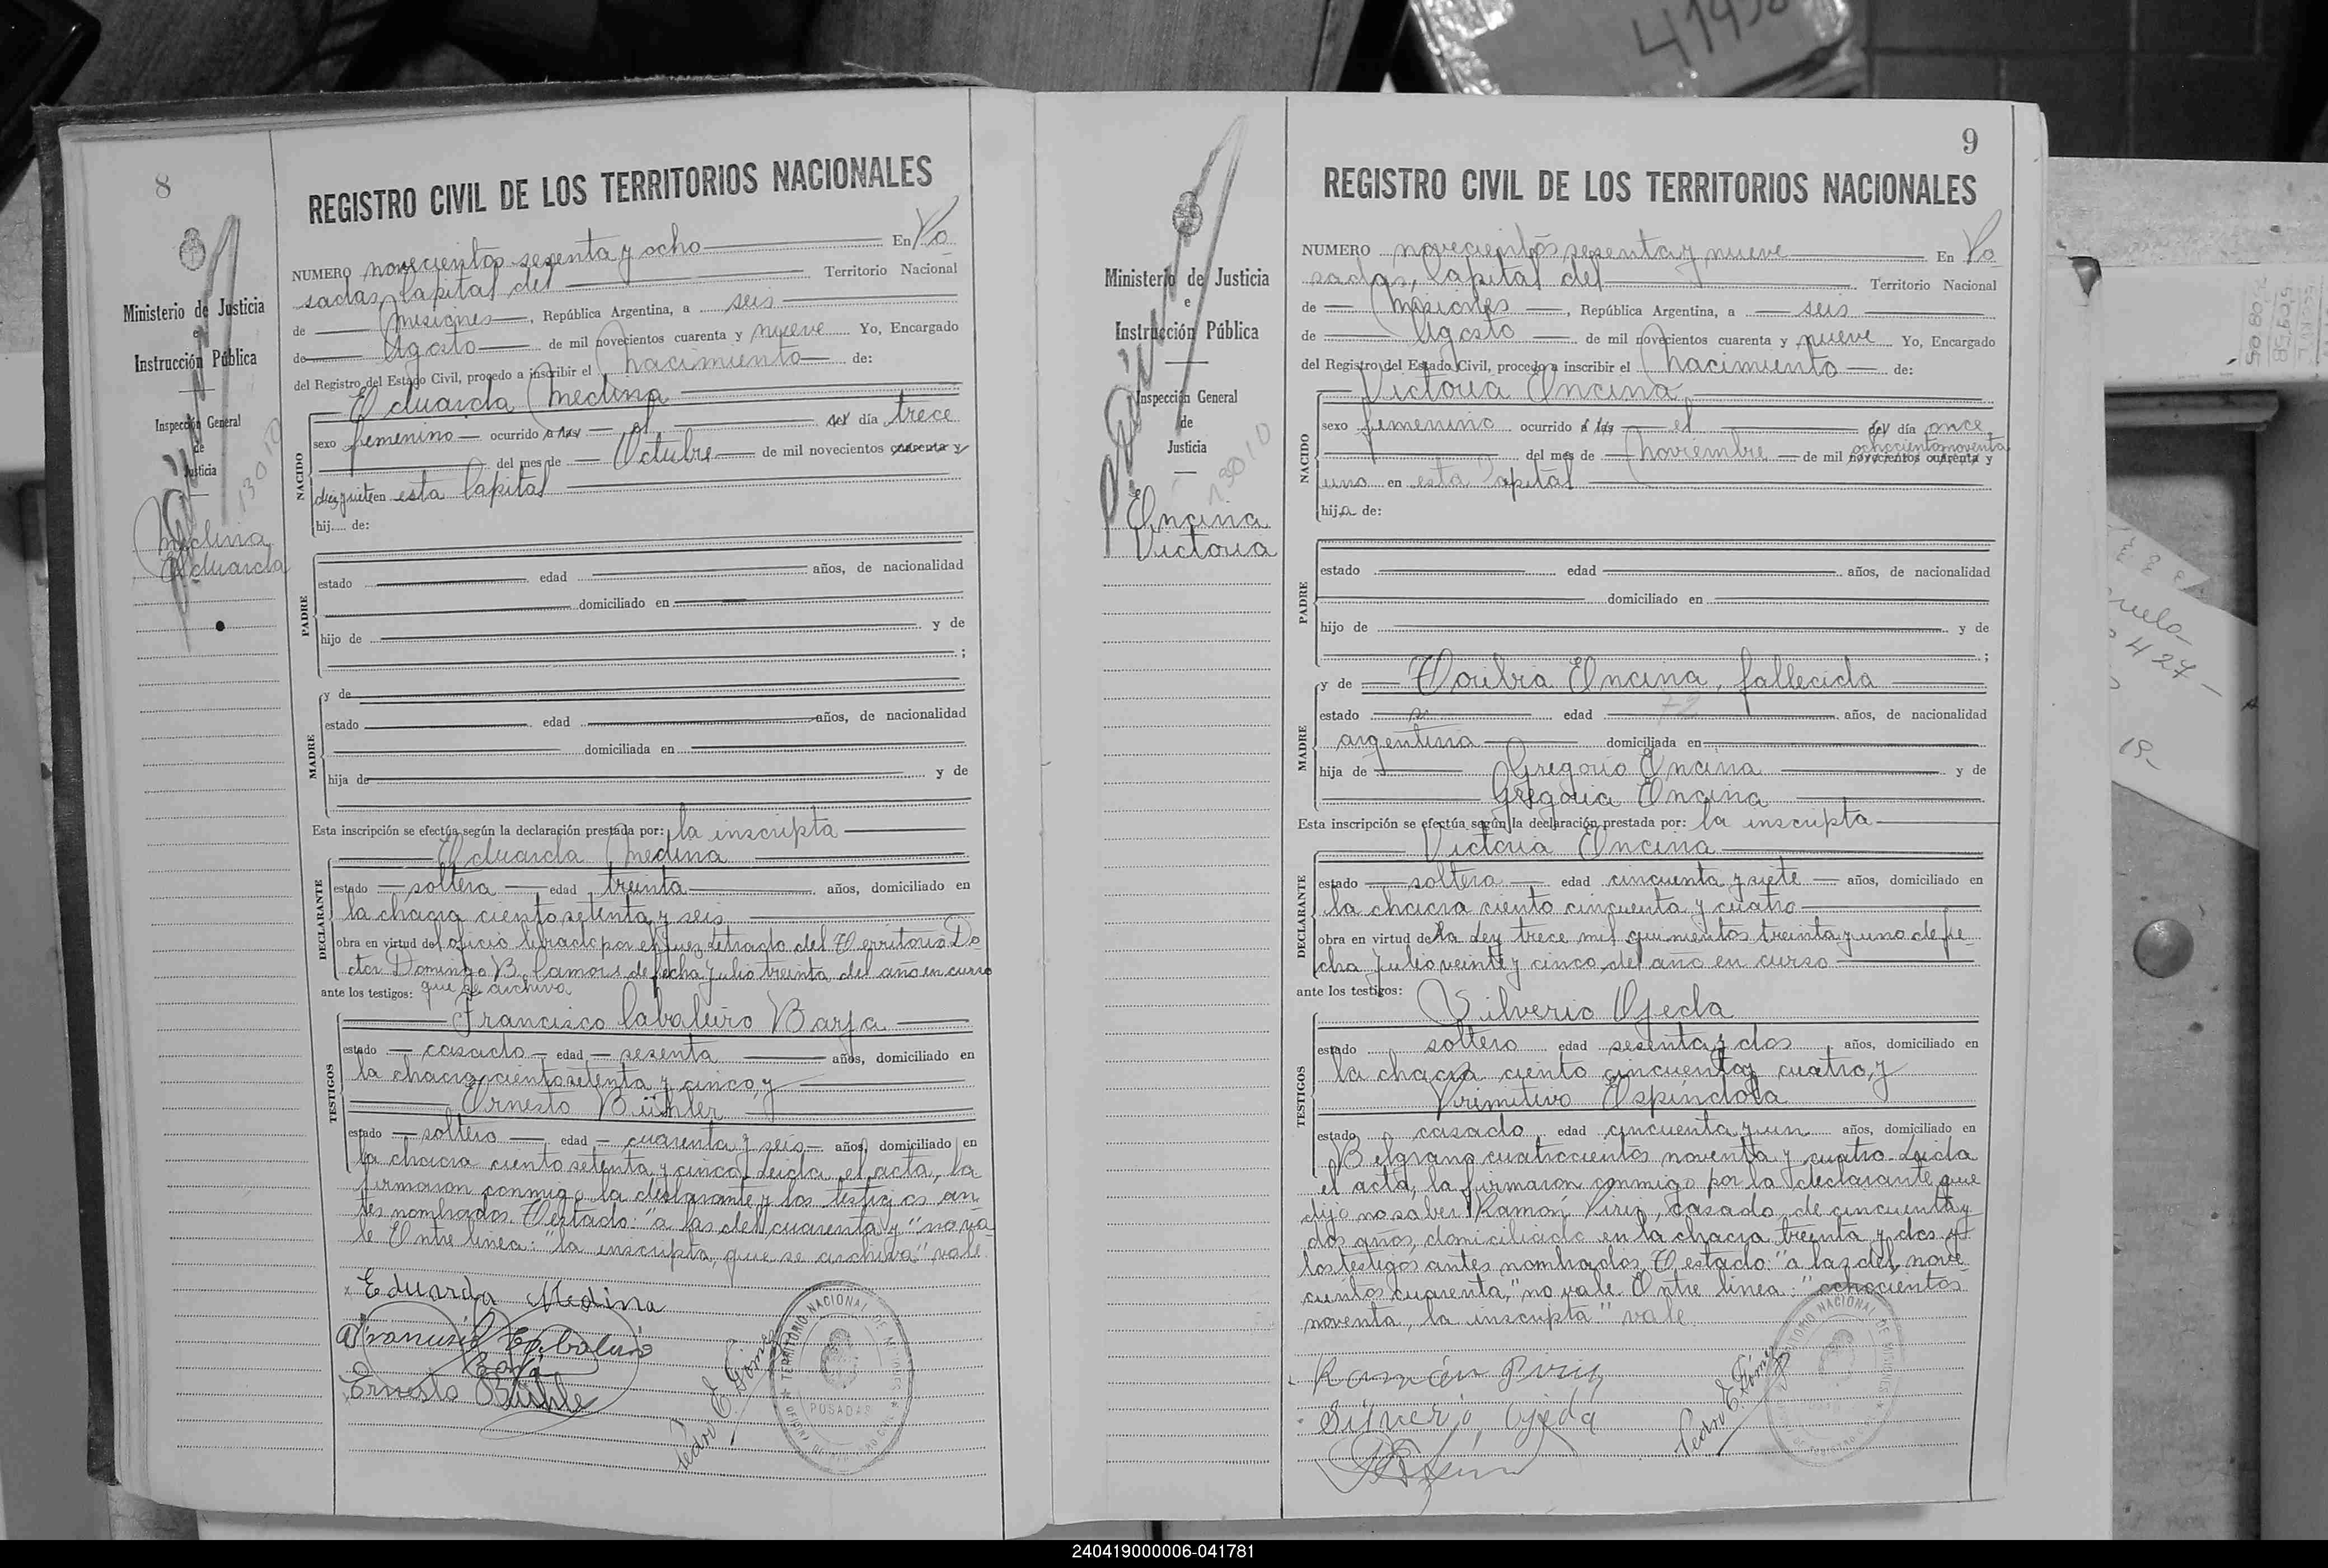 41938
8
Ministerio de Justicia
e
Instrucción Pública
Inspección General
de
Justicia
13010
Medina
Eduarda
REGISTRO CIVIL DE LOS TERRITORIOS NACIONALES
NUMERO novecientos sesenta y ocho En Po
sadas, Capital del Territorio Nacional
de Misiones, República Argentina, a seis
de Agosto de mil novecientos cuarenta y nueve Yo, Encargado
del Registro del Estado Civil, procedo a inscribir el nacimiento de:
NACIDO
Eduarda Medina
sexo femenino ocurrido a las el del día trece
del mes de Octubre de mil novecientos cuarenta y
diez y siete en esta Capital
hij.... de:
PADRE
estado edad años, de nacionalidad
domiciliado en
hijo de y de
;
MADRE
y de
estado edad años, de nacionalidad
domiciliada en
hija de y de
Esta inscripción se efectúa según la declaración prestada por: la inscripta
DECLARANTE
Eduarda Medina
estado soltera edad treinta años, domiciliado en
la chacra ciento setenta y seis
obra en virtud del oficio librado por el Juez Letrado del Territorio Do
ctor Domingo B. Camors de fecha Julio treinta del año en curso
ante los testigos: que se archiva
TESTIGOS
Francisco Cabaleiro Barja
estado casado edad sesenta años, domiciliado en
la chacra ciento setenta y cinco, y
Ernesto Bühler
estado soltero edad cuarenta y seis años, domiciliado en
la chacra ciento setenta y cinco. Leida el acta, la
firmaron conmigo la declarante y los testigos an
tes nombrados. Testado: "a las del, cuarenta y" no va
le Entre linea: "la inscripta, que se archiva" vale
Eduarda Medina
Francisco Cabaleiro
Barja
Ernesto Bühle
Pedro E. Gómez
TERRITORIO NACIONAL DE MISIONES
POSADAS
9
Ministerio de Justicia
e
Instrucción Pública
Inspección General
de
Justicia
13010
Encina
Victoria
REGISTRO CIVIL DE LOS TERRITORIOS NACIONALES
NUMERO novecientos sesenta y nueve En Po
sadas, Capital del Territorio Nacional
de Misiones, República Argentina, a seis
de Agosto de mil novecientos cuarenta y nueve Yo, Encargado
del Registro del Estado Civil, procedo a inscribir el nacimiento de:
NACIDO
Victoria Encina
sexo femenino ocurrido a las el del día once
ochocientos noventa
del mes de Noviembre de mil novecientos cuarenta y
uno en esta Capital
hija de:
PADRE
estado edad años, de nacionalidad
domiciliado en
hijo de y de
;
MADRE
y de Toribia Encina, fallecida
estado edad años, de nacionalidad
argentina domiciliada en
hija de Gregorio Encina y de
Gregoria Encina
Esta inscripción se efectúa según la declaración prestada por: la inscripta
DECLARANTE
Victoria Encina
estado soltera edad cincuenta y siete años, domiciliado en
la chacra ciento cincuenta y cuatro
obra en virtud de la Ley trece mil quinientos treinta y uno de fe
cha Julio veinte y cinco del año en curso
ante los testigos:
TESTIGOS
Silverio Ojeda
estado soltero edad sesenta y dos, años, domiciliado en
la chacra ciento cincuenta y cuatro, y
Primitivo Espíndola
estado casado edad cincuenta y un años, domiciliado en
Belgrano cuatrocientos noventa y cuatro. Leida
el acta, la firmaron conmigo por la declarante que
dijo no saber Ramón Piriz, casado, de cincuenta y
dos años, domiciliado en la chacra treinta y dos y
los testigos antes nombrados. Testado: "a las del, nove
cientos cuarenta," no vale. Entre linea: "ochocientos
noventa, la inscripta" vale
Ramón Piriz
Silverio Ojeda
Pedro E. Gómez
240419000006-041781